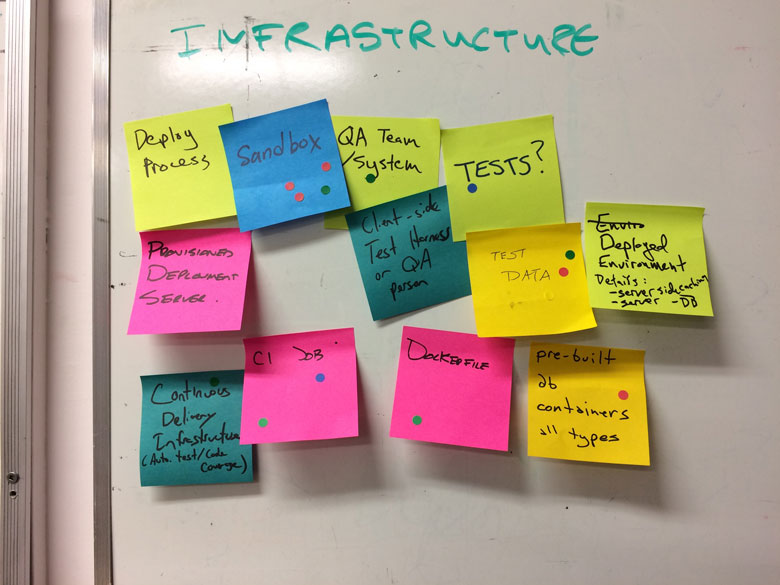 INFRASTRUCTURE
Deploy
Process
Sandbox
QA Team
/System
TESTS?
PROVISIONED
DEPLOYMENT
SERVER.
Client-side
Test Harness
or QA
person
TEST
DATA
Enviro
Deployed
Environment
Details:
-server side caching
-server -DB
Continuous
Delivery
Infrastructure
(Auto. test/Code
Coverage)
CI JOB
DOCKERFILE
pre-built
db
containers
all types